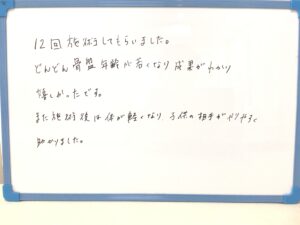 12回施術してもらいました。
どんどん骨盤年齢が若くなり成果がわかり
嬉しかったです。
また施術後は体が軽くなり、子供の相手がやりやすく
助かりました。